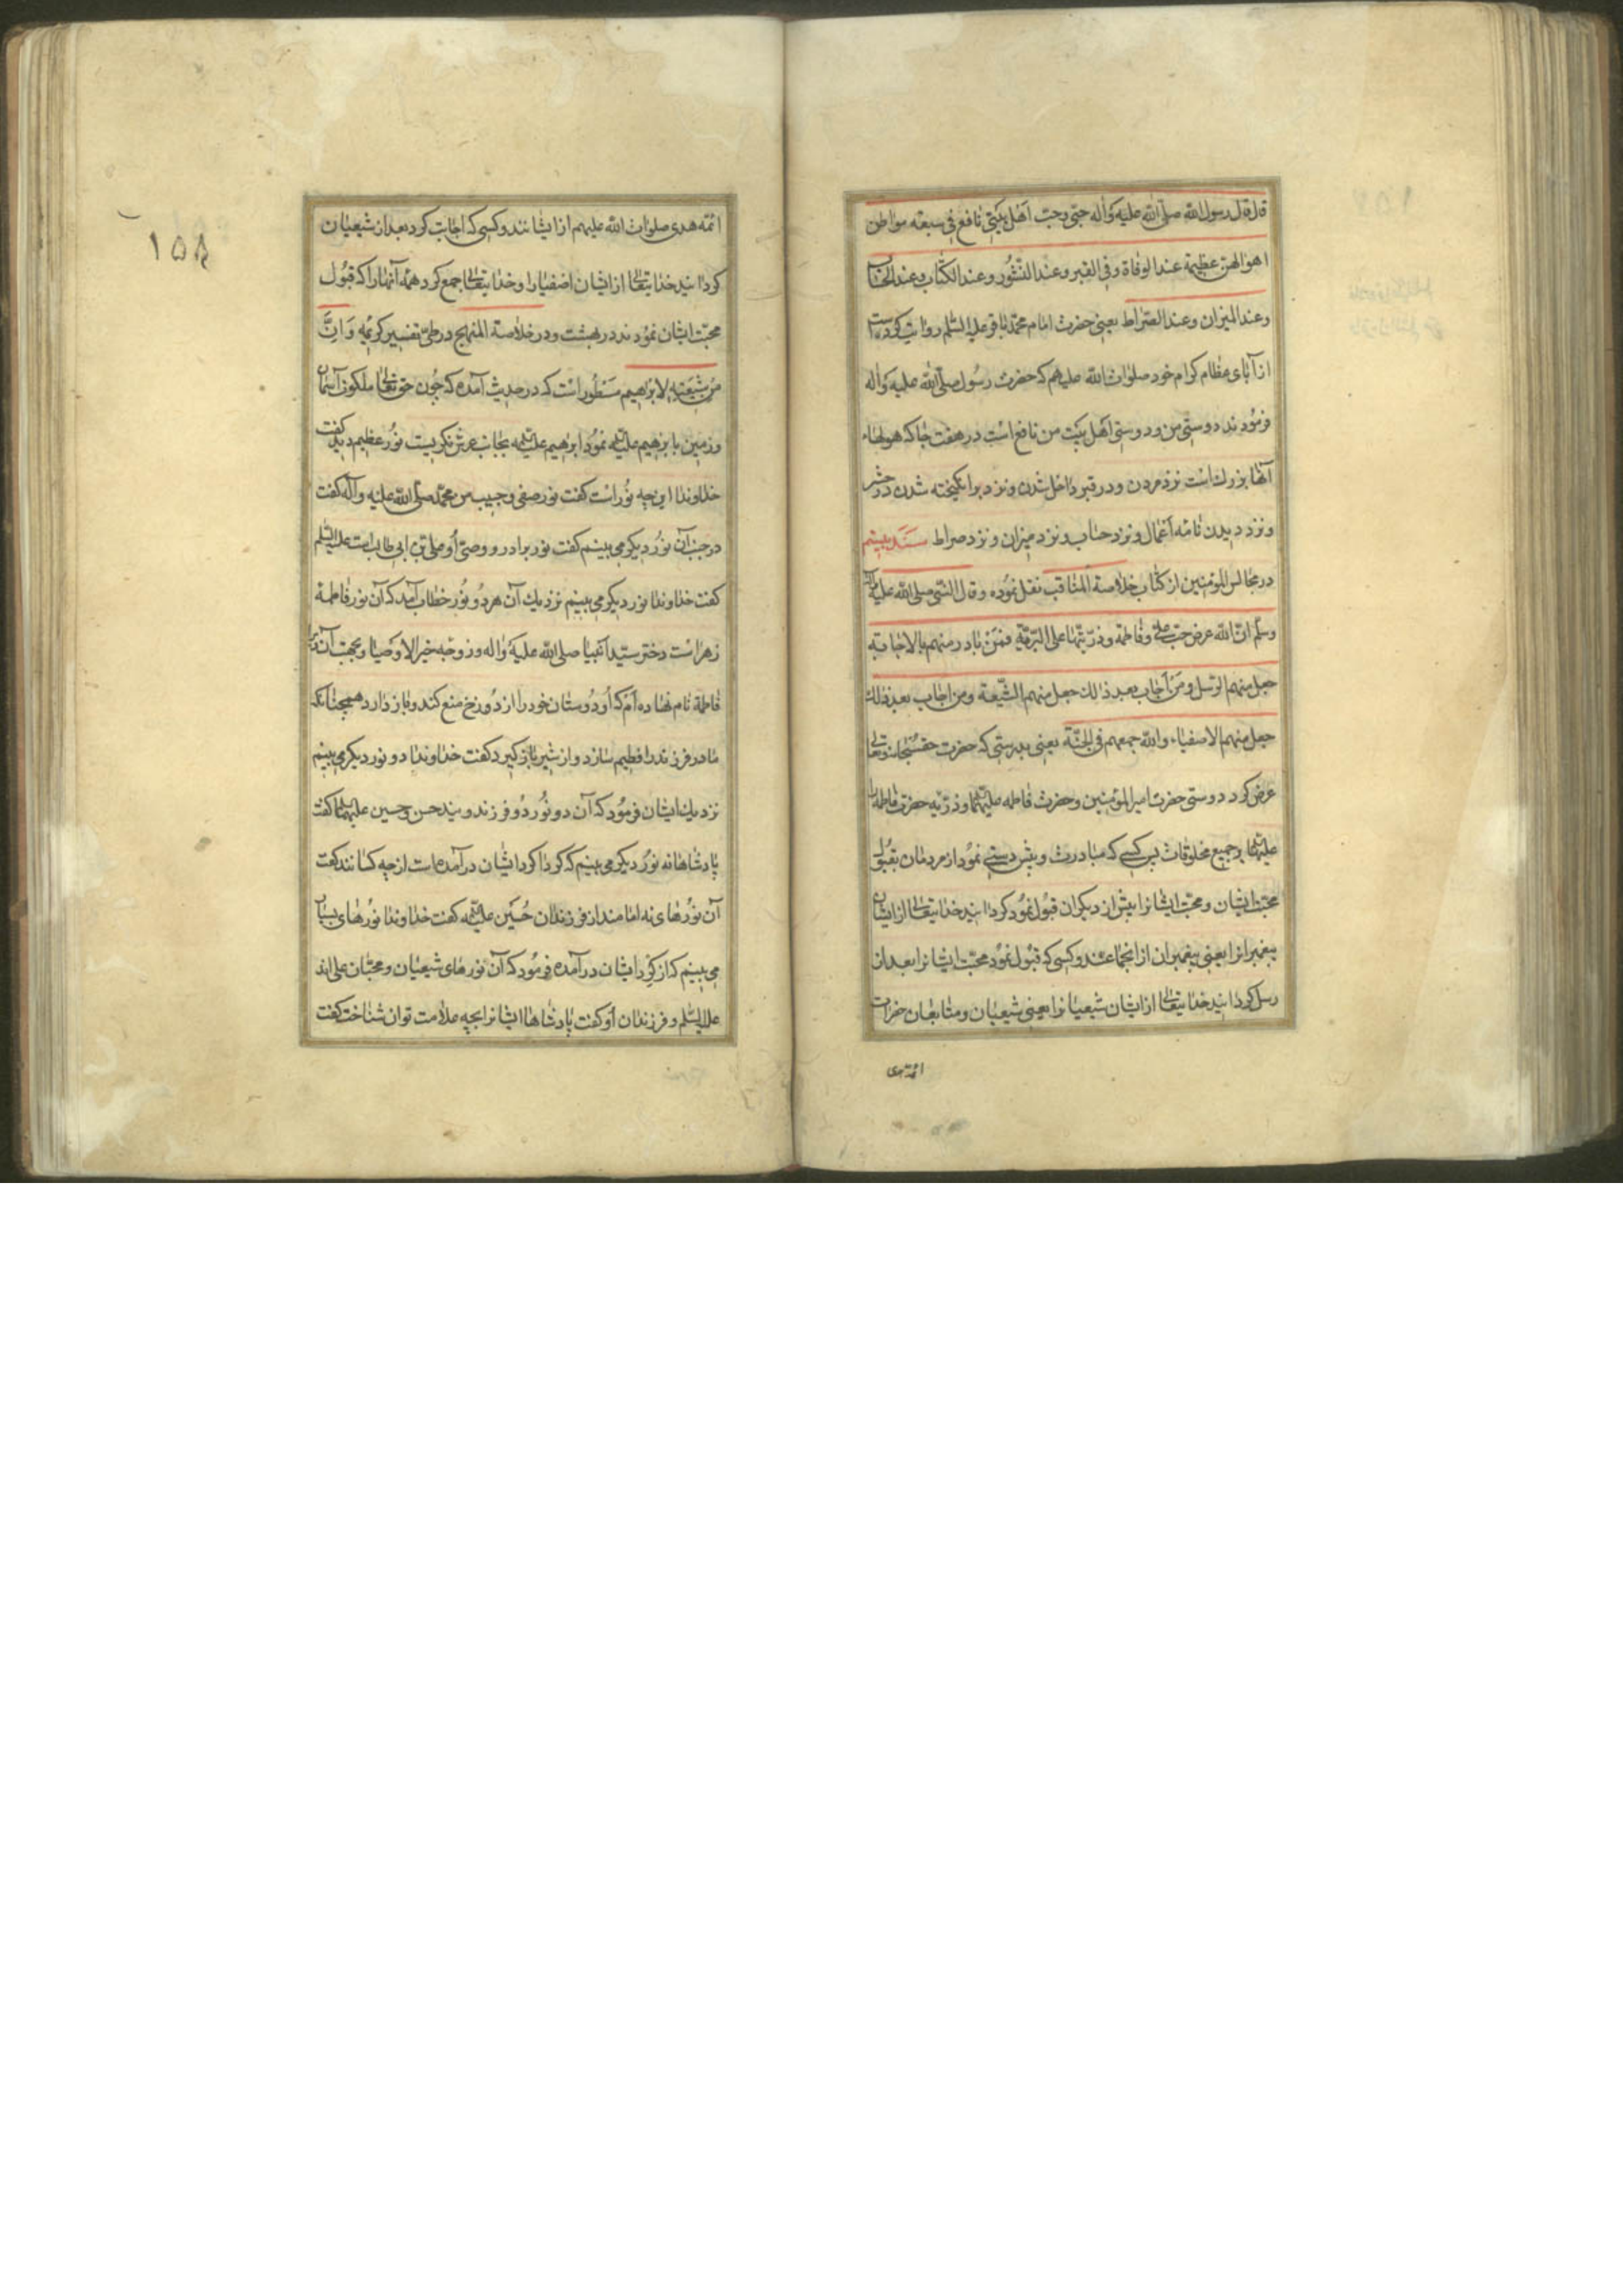 قال قال رسول الله صلی الله علیه واله حبّی وحبّ اهل بیتی نافع فی سبعه مواطن
اهوالهن عظیمة عند الوفاة وفی القبر وعند النشور وعند الکتاب وعند الحساب
وعند المیزان وعند الصراط یعنی حضرت امام محمد باقر علیه السلم روایت کرده است
از آبای عظام کرام خود صلوات الله علیهم که حضرت رسول صلی الله علیه واله
فرمودند دوستی من ودوستی اهل بیت من نافع است در هفت جا که هولهاء
آنها بزرك است نزد مردن ودر قبر داخل شدن ونزد برانکیخته شدن در حشر
ونزد دیدن نامه اعمال ونزد حساب ونزد میزان ونزد صراط سند بیستم
در مجالس المؤمنین از کتاب خلاصة المناقب نقل نموده وقال النبی صلی الله علیه واله
وسلم انّ الله عرض حبّ علی وفاطمة وذرّیّتهما علی البریّة فمن بادر منهم بالاجابة
جعل منهم الرسل ومن اجاب بعد ذلك جعل منهم الشّیعة ومن اجاب بعد ذلك
جعل منهم الاصفیاء والله جمعهم فی الجنّة یعنی بدرستی که حضرت حق سبحانه وتعالی
عرض کرد دوستی حضرت امیر المؤمنین وحضرت فاطمه علیهما وذرّیه حضرت فاطمه را
علیهما بر جمیع مخلوقات پس کسی که مبادرت وپیش دستی نمود از مردمان بقبول
محبّت ایشان ومحبّت ایشانرا پیش از دیکران قبول نمود کردانید خدایتعالی از ایشان
پیغمبرانرا یعنی پیغمبران از انجماعتند وکسی که قبول نمود محبّت ایشانرا بعد از
رسل کردانید خدایتعالی از ایشان شیعیانرا یعنی شیعیان ومتابعان حضرات
ائمه هدی
۱۵۸
ائمه هدی صلوات الله علیهم از ایشانند وکسی که اجابت کرد بعد از شیعیان
کردانید خدایتعالی از ایشان اصفیارا وخدایتعالی جمع کرد همه آنهارا که قبول
محبّت ایشان نمودند در بهشت ودر خلاصة المنهج در طی تفسیر کریمه وَاِنَّ
من شیعته لابراهیم مسطور است که در حدیث آمده که چون حق تعالی ملکوت آسمان
وزمین بابرهیم علیه نمود ابرهیم علیه بجانب عرش نکریست نور عظیم دید کفت
خداوندا این چه نور است کفت نور صفی وحبیب من محمد صلی الله علیه واله کفت
در جنب آن نور دیکر می بینم کفت نور برادر ووصیّ او علی بن ابی طالب است علیه السلم
کفت خداوندا نور دیکر می بینم نزدیك آن هر دو نور خطاب آمد که آن نور فاطمة
زهراست دختر سیّد انبیا صلی الله علیه واله وزوجه خیر الاوصیا وبجهت آن
فاطمة نام نهاده ام که او دوستان خود را از دوزخ منع کند وباز دارد همچنانکه
مادر فرزند را فطیم سازد واز شیر باز کیرد کفت خداوندا دو نور دیکر می بینم
نزدیك ایشان فرمود که آن دو نور دو فرزند ویند حسن وحسین علیهما کفت
پادشاها نه نور دیکر می بینم که کردا کرد ایشان در آمده است از چه کسانند کفت
آن نورهای نه امامند از فرزندان حسین علیه کفت خداوندا نورهای بسیار
می بینم که از کرد ایشان در آمده فرمود که آن نورهای شیعیان ومحبّان علی اند
علیه السلم وفرزندان او کفت پادشاها ایشانرا بچه علامت توان شناخت کفت